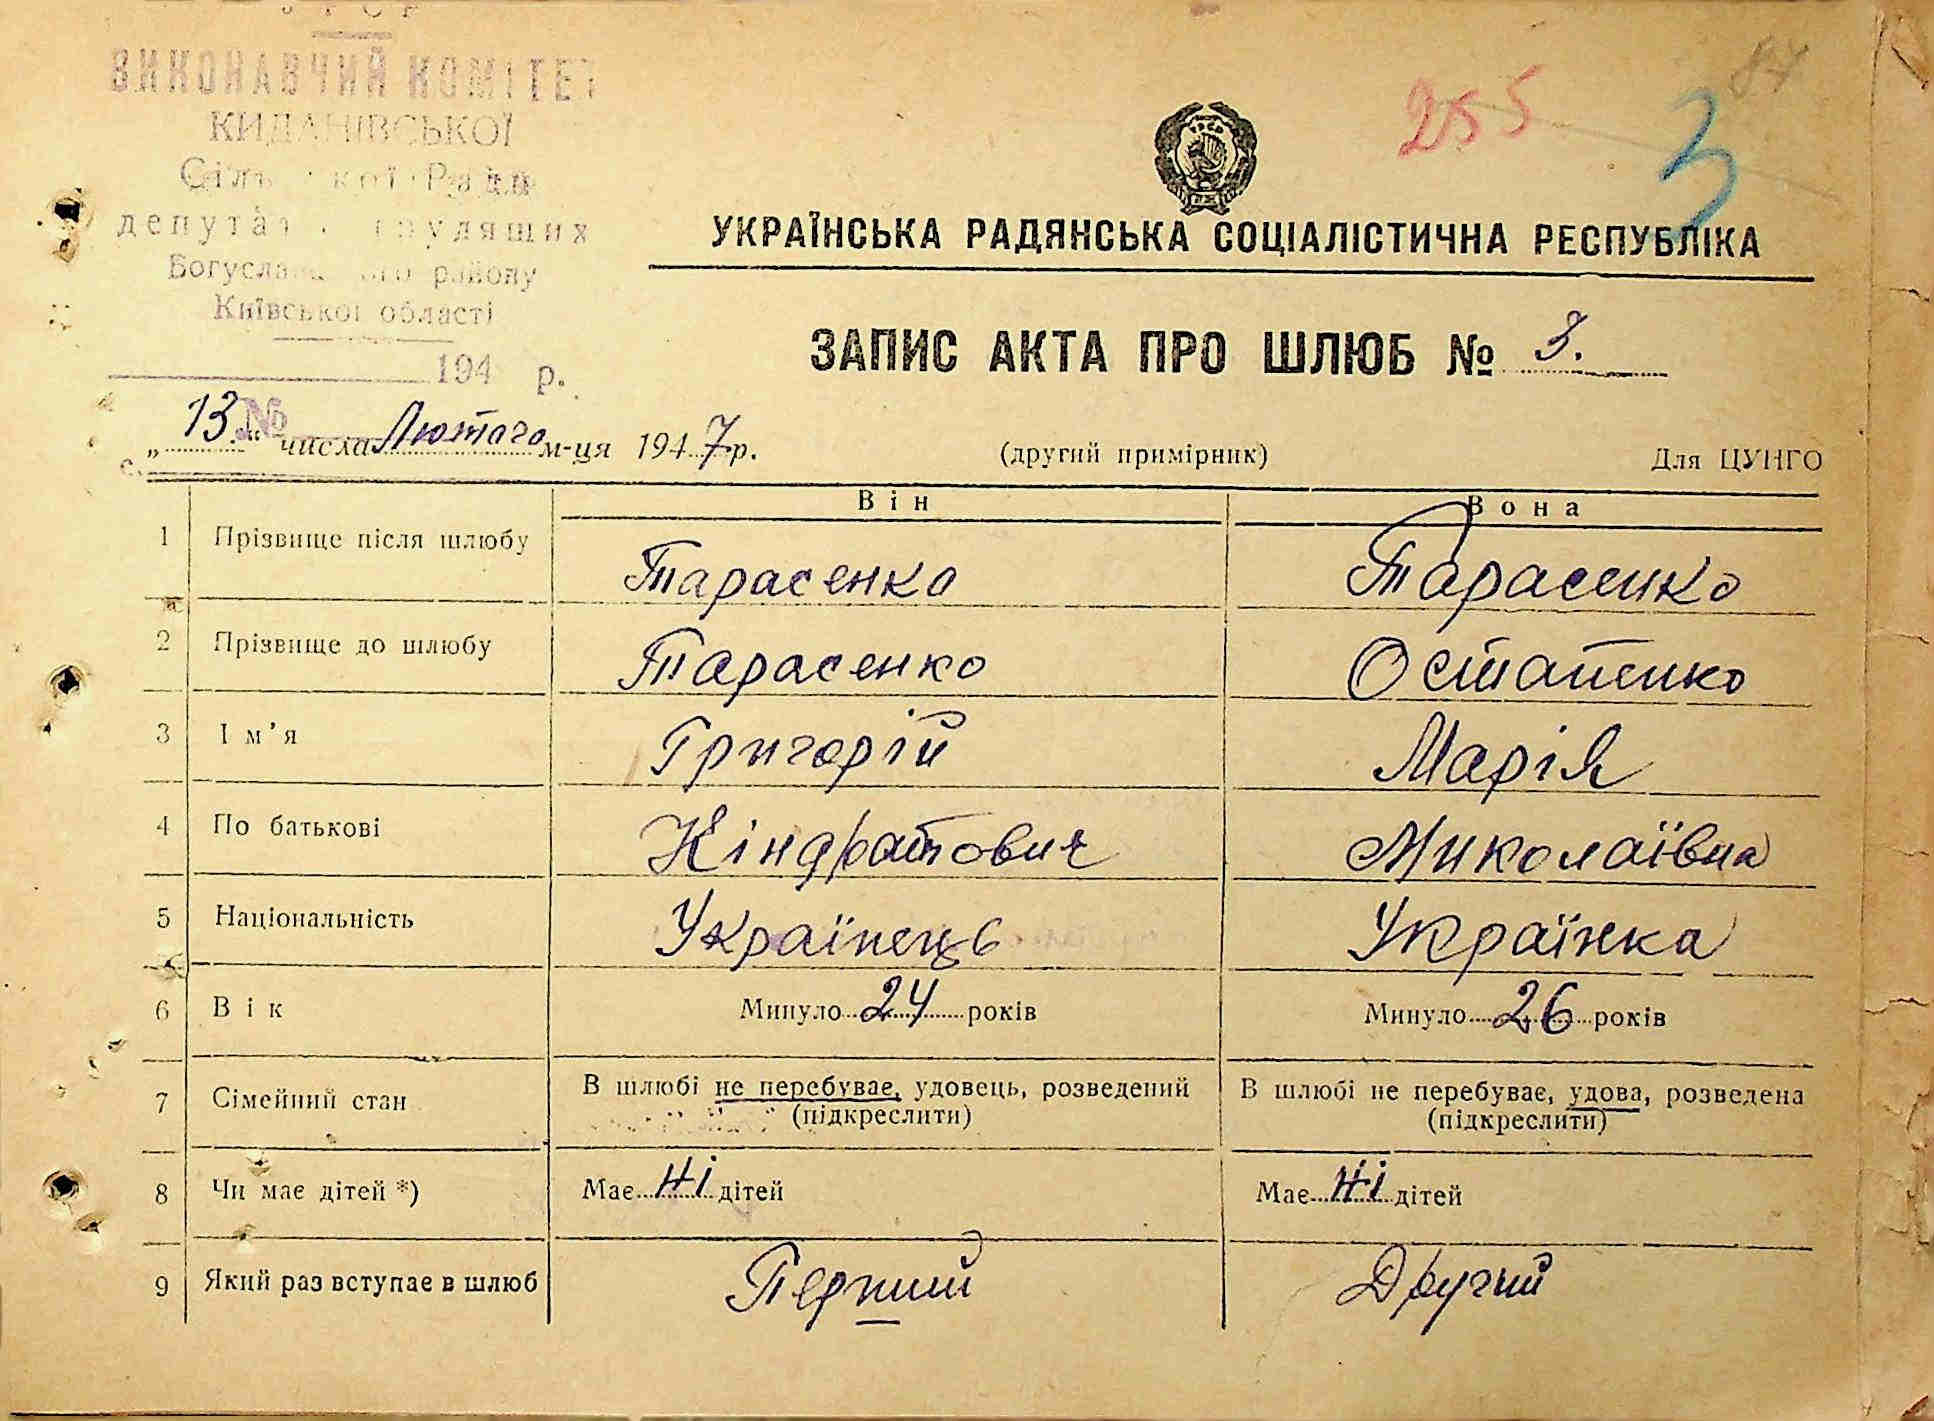 УРСР
ВИКОНАВЧИЙ КОМІТЕТ
КИДАНІВСЬКОЇ
Сільської Ради
депутатів трудящих
Богуславського району
Київської області
194 р.
№
с.
255
3
84
УКРАЇНСЬКА РАДЯНСЬКА СОЦІАЛІСТИЧНА РЕСПУБЛІКА
ЗАПИС АКТА ПРО ШЛЮБ № 3.
„13." числа Лютого м-ця 1947 р. (другий примірник) Для ЦУНГО
Він Вона
1 Прізвище після шлюбу Тарасенко Тарасенко
2 Прізвище до шлюбу Тарасенко Остапенко
3 Ім'я Григорій Марія
4 По батькові Кіндратович Миколаївна
5 Національність Українець Українка
6 Вік Минуло 24 років Минуло 26 років
7 Сімейний стан В шлюбі не перебуває, удовець, розведений В шлюбі не перебуває, удова, розведена
(підкреслити) (підкреслити)
8 Чи має дітей *) Має ні дітей Має ні дітей
9 Який раз вступає в шлюб Перший Другий